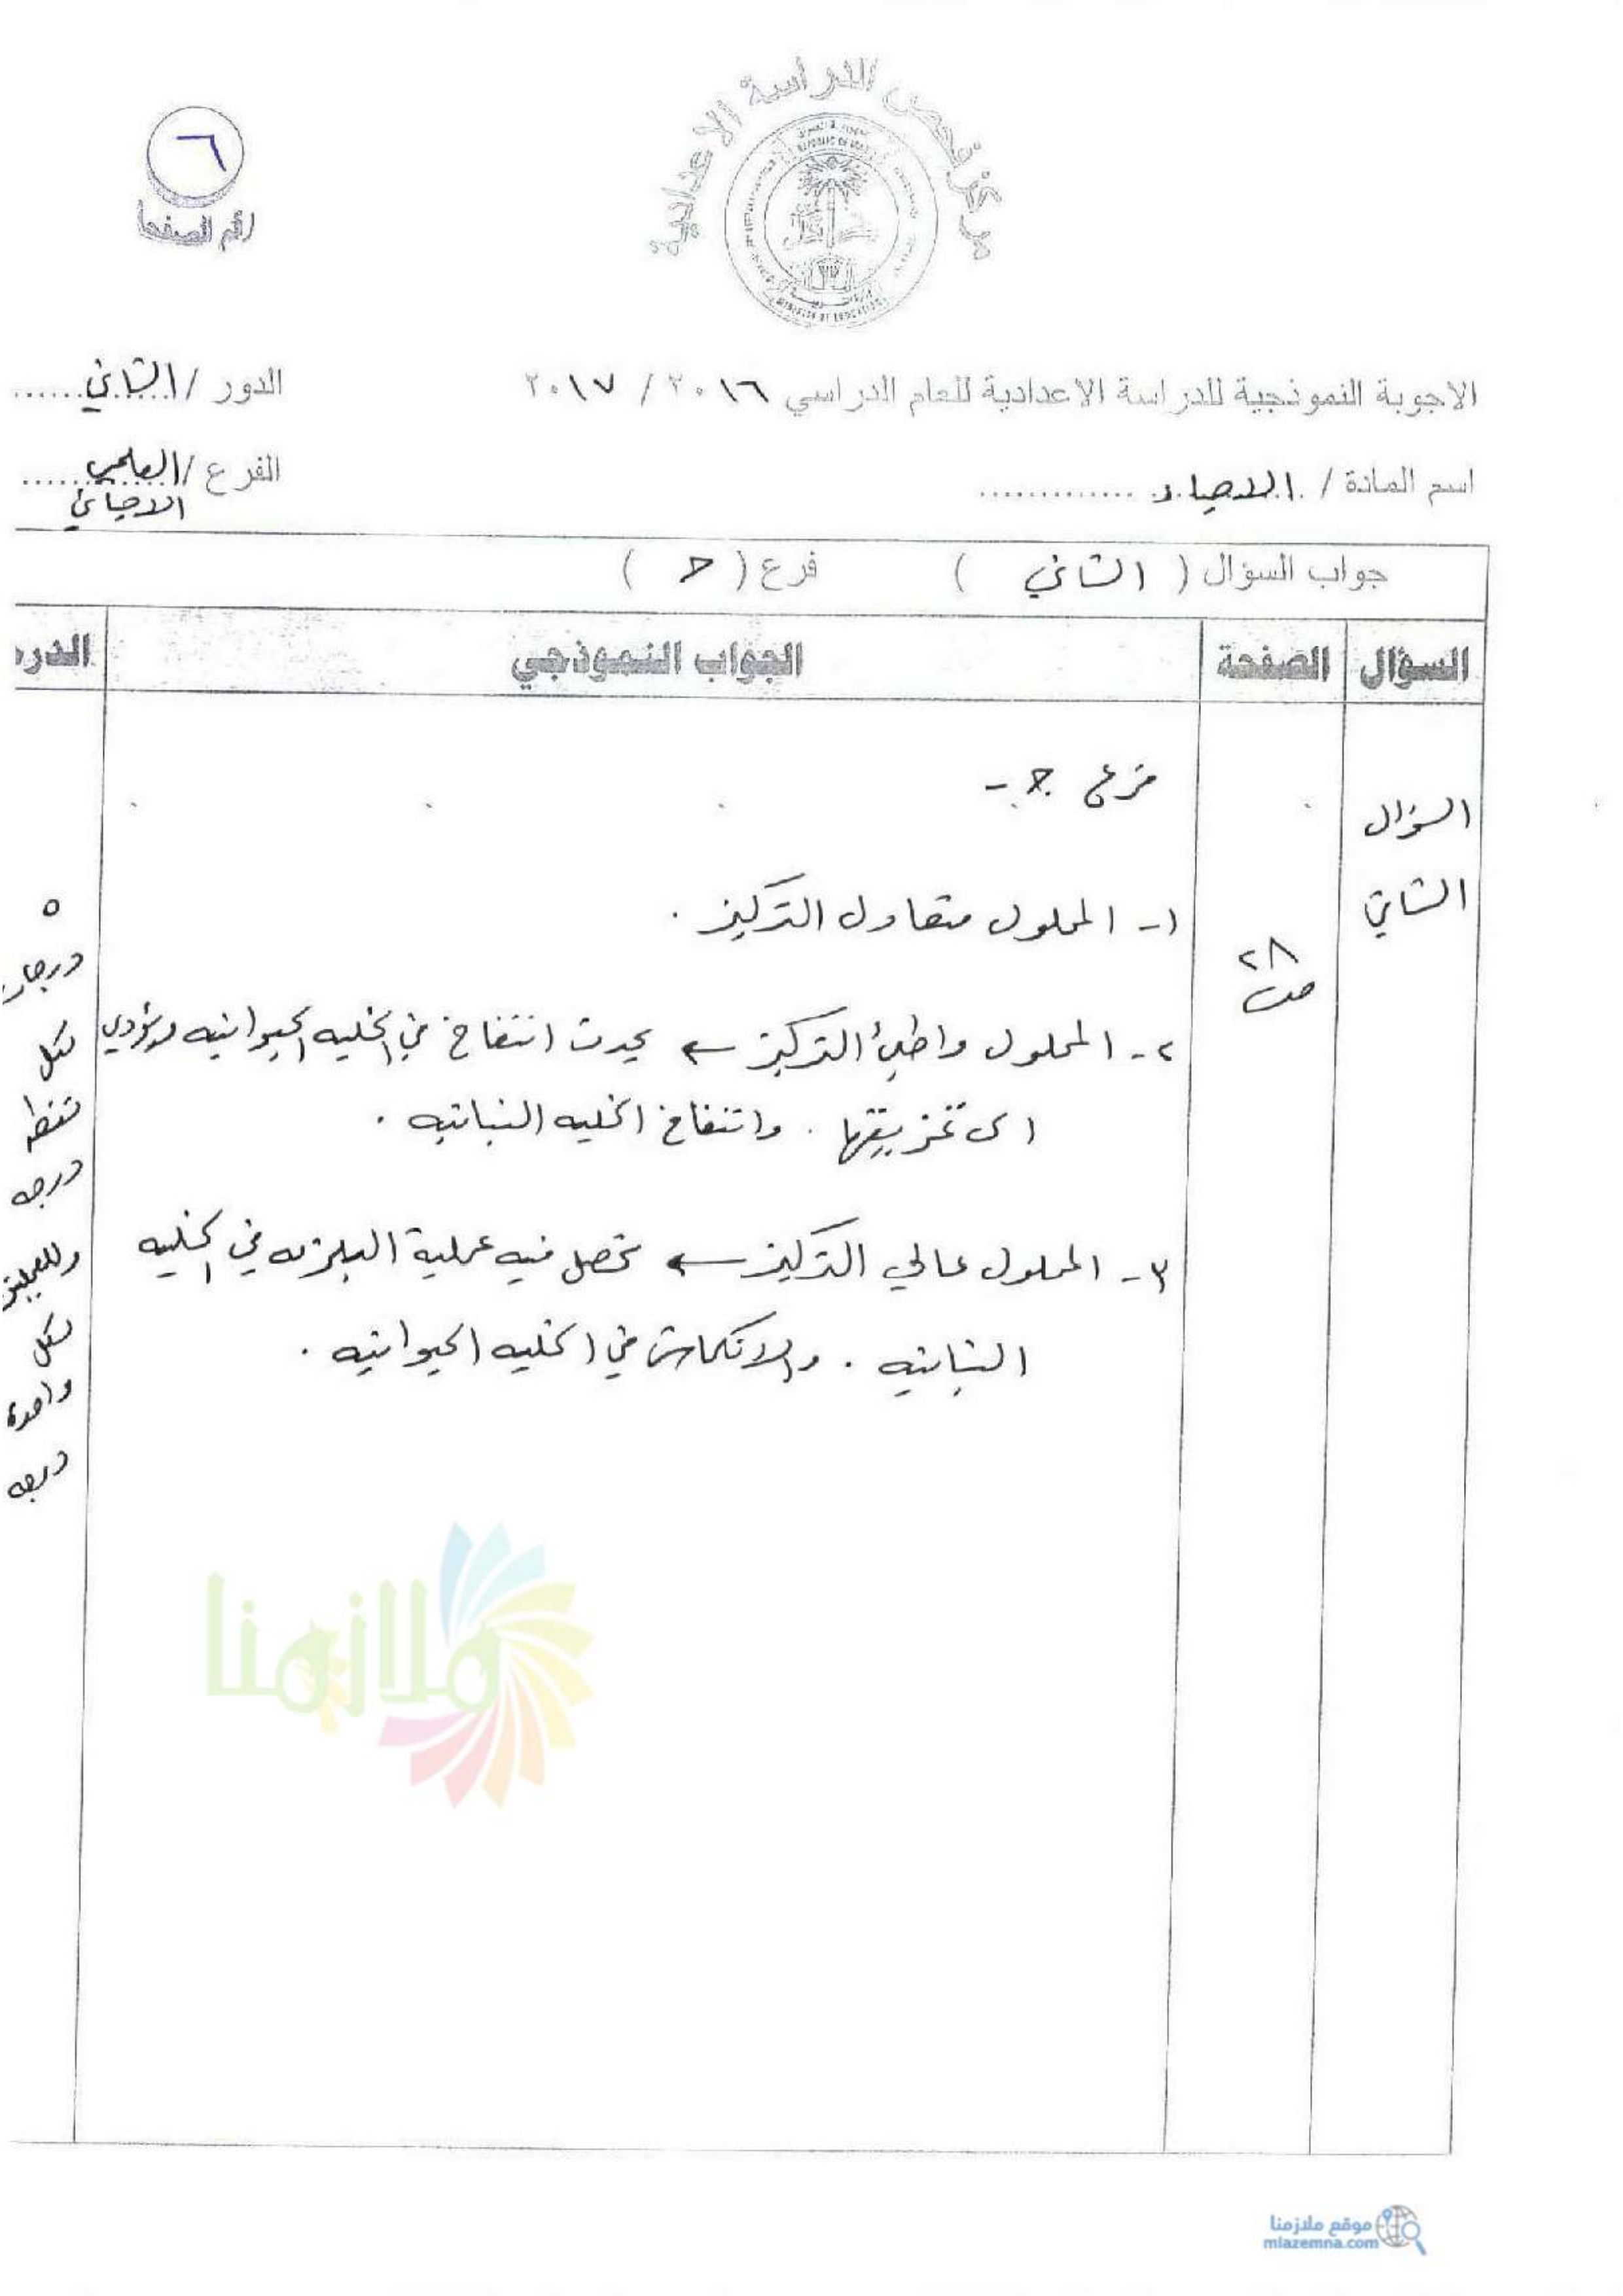 مركز فحص الدراسة الاعدادية
REPUBLIC OF IRAQ
MINISTRY OF EDUCATION
٦
رقم الصفحة
الاجوبة النموذجية للدراسة الاعدادية للعام الدراسي ٢٠١٦ / ٢٠١٧
الدور / الثاني
اسم المادة / الاحياء
الفرع / العلمي
الاحيائي
جواب السؤال ( الثاني ) فرع ( ح )
السؤال الصفحة الجواب النموذجي الدرجـ
السؤال
الثاني
٢٨
ص
فرع ح -
١- المحلول متعادل التركيز .
٢- المحلول واطئ التركيز ← يحدث انتفاخ في الخليه الحيوانيه ويؤدي
الى تمزيقها . وانتفاخ الخليه النباتيه .
٣- المحلول عالي التركيز ← تحصل فيه عملية البلزمه في الخليه
النباتيه . والانكماش في الخليه الحيوانيه .
٥
درجات
لكل
نقطه
درجه
لكل
واحدة
درجه
ملازمنا
موقع ملازمنا
mlazemna.com